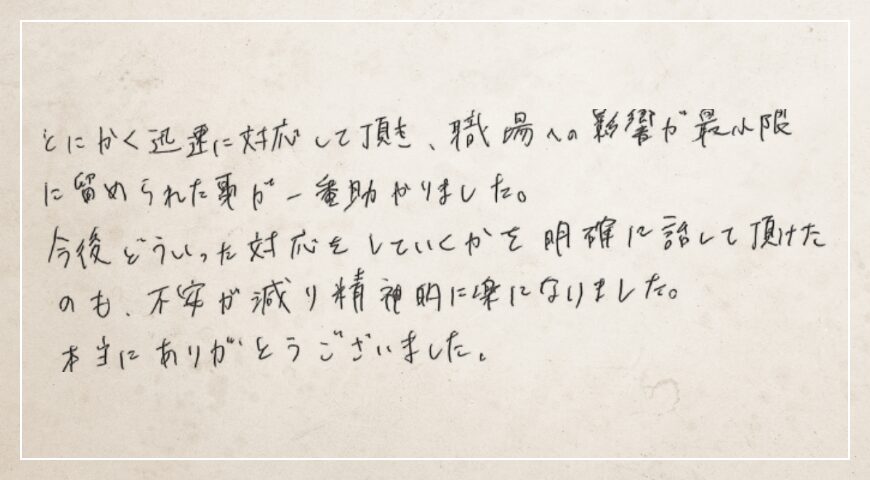 とにかく迅速に対応して頂き、職場への影響が最小限
に留められた事が一番助かりました。
今後どういった対応をしていくかを明確に話して頂けた
のも、不安が減り精神的に楽になりました。
本当にありがとうございました。